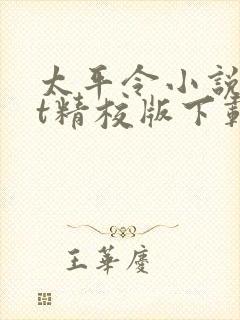 太平令小説
t精校版下載
王華慶